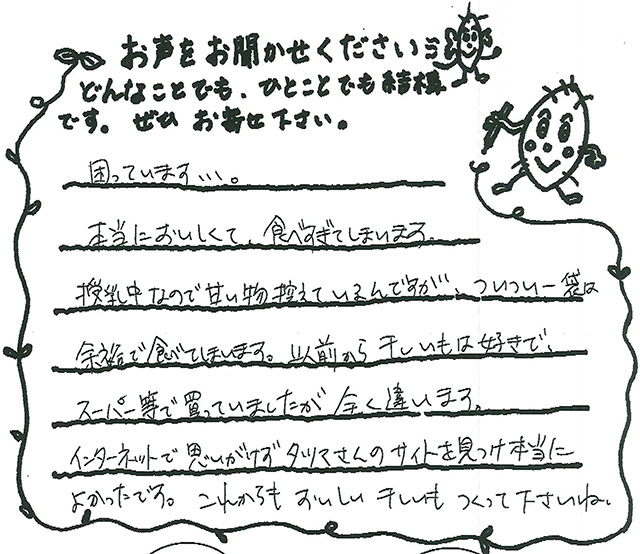 お声をお聞かせください
どんなことでも、ひとことでも結構
です。ぜひ お寄せ下さい。
困っています…。
本当においしくて、食べすぎてしまいます。
授乳中なので甘い物控えているんですが、ついつい一袋は
余裕で食べてしまいます。以前から干しいもは好きで、
スーパー等で買っていましたが全く違います。
インターネットで思いがけずタツマさんのサイトを見つけ本当に
よかったです。これからもおいしい干しいもつくって下さいね。